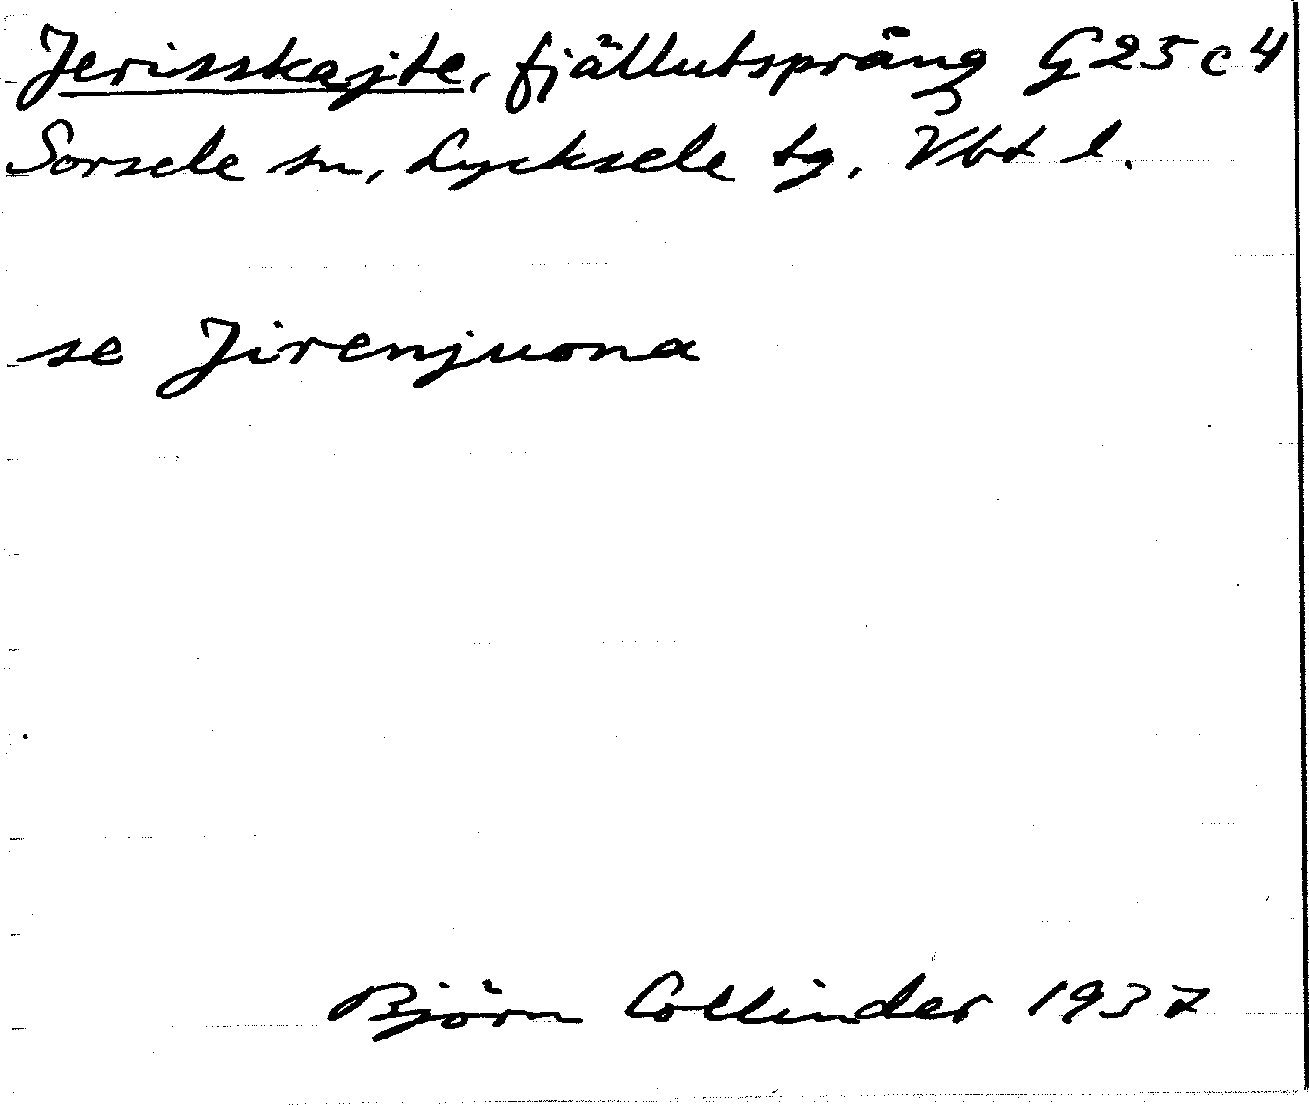 Jerisskajte, fjällutsprång G25c4
Sorsele sn, Lycksele tg, Vbt l.
se Jirenjuona
Björn Collinder 1937